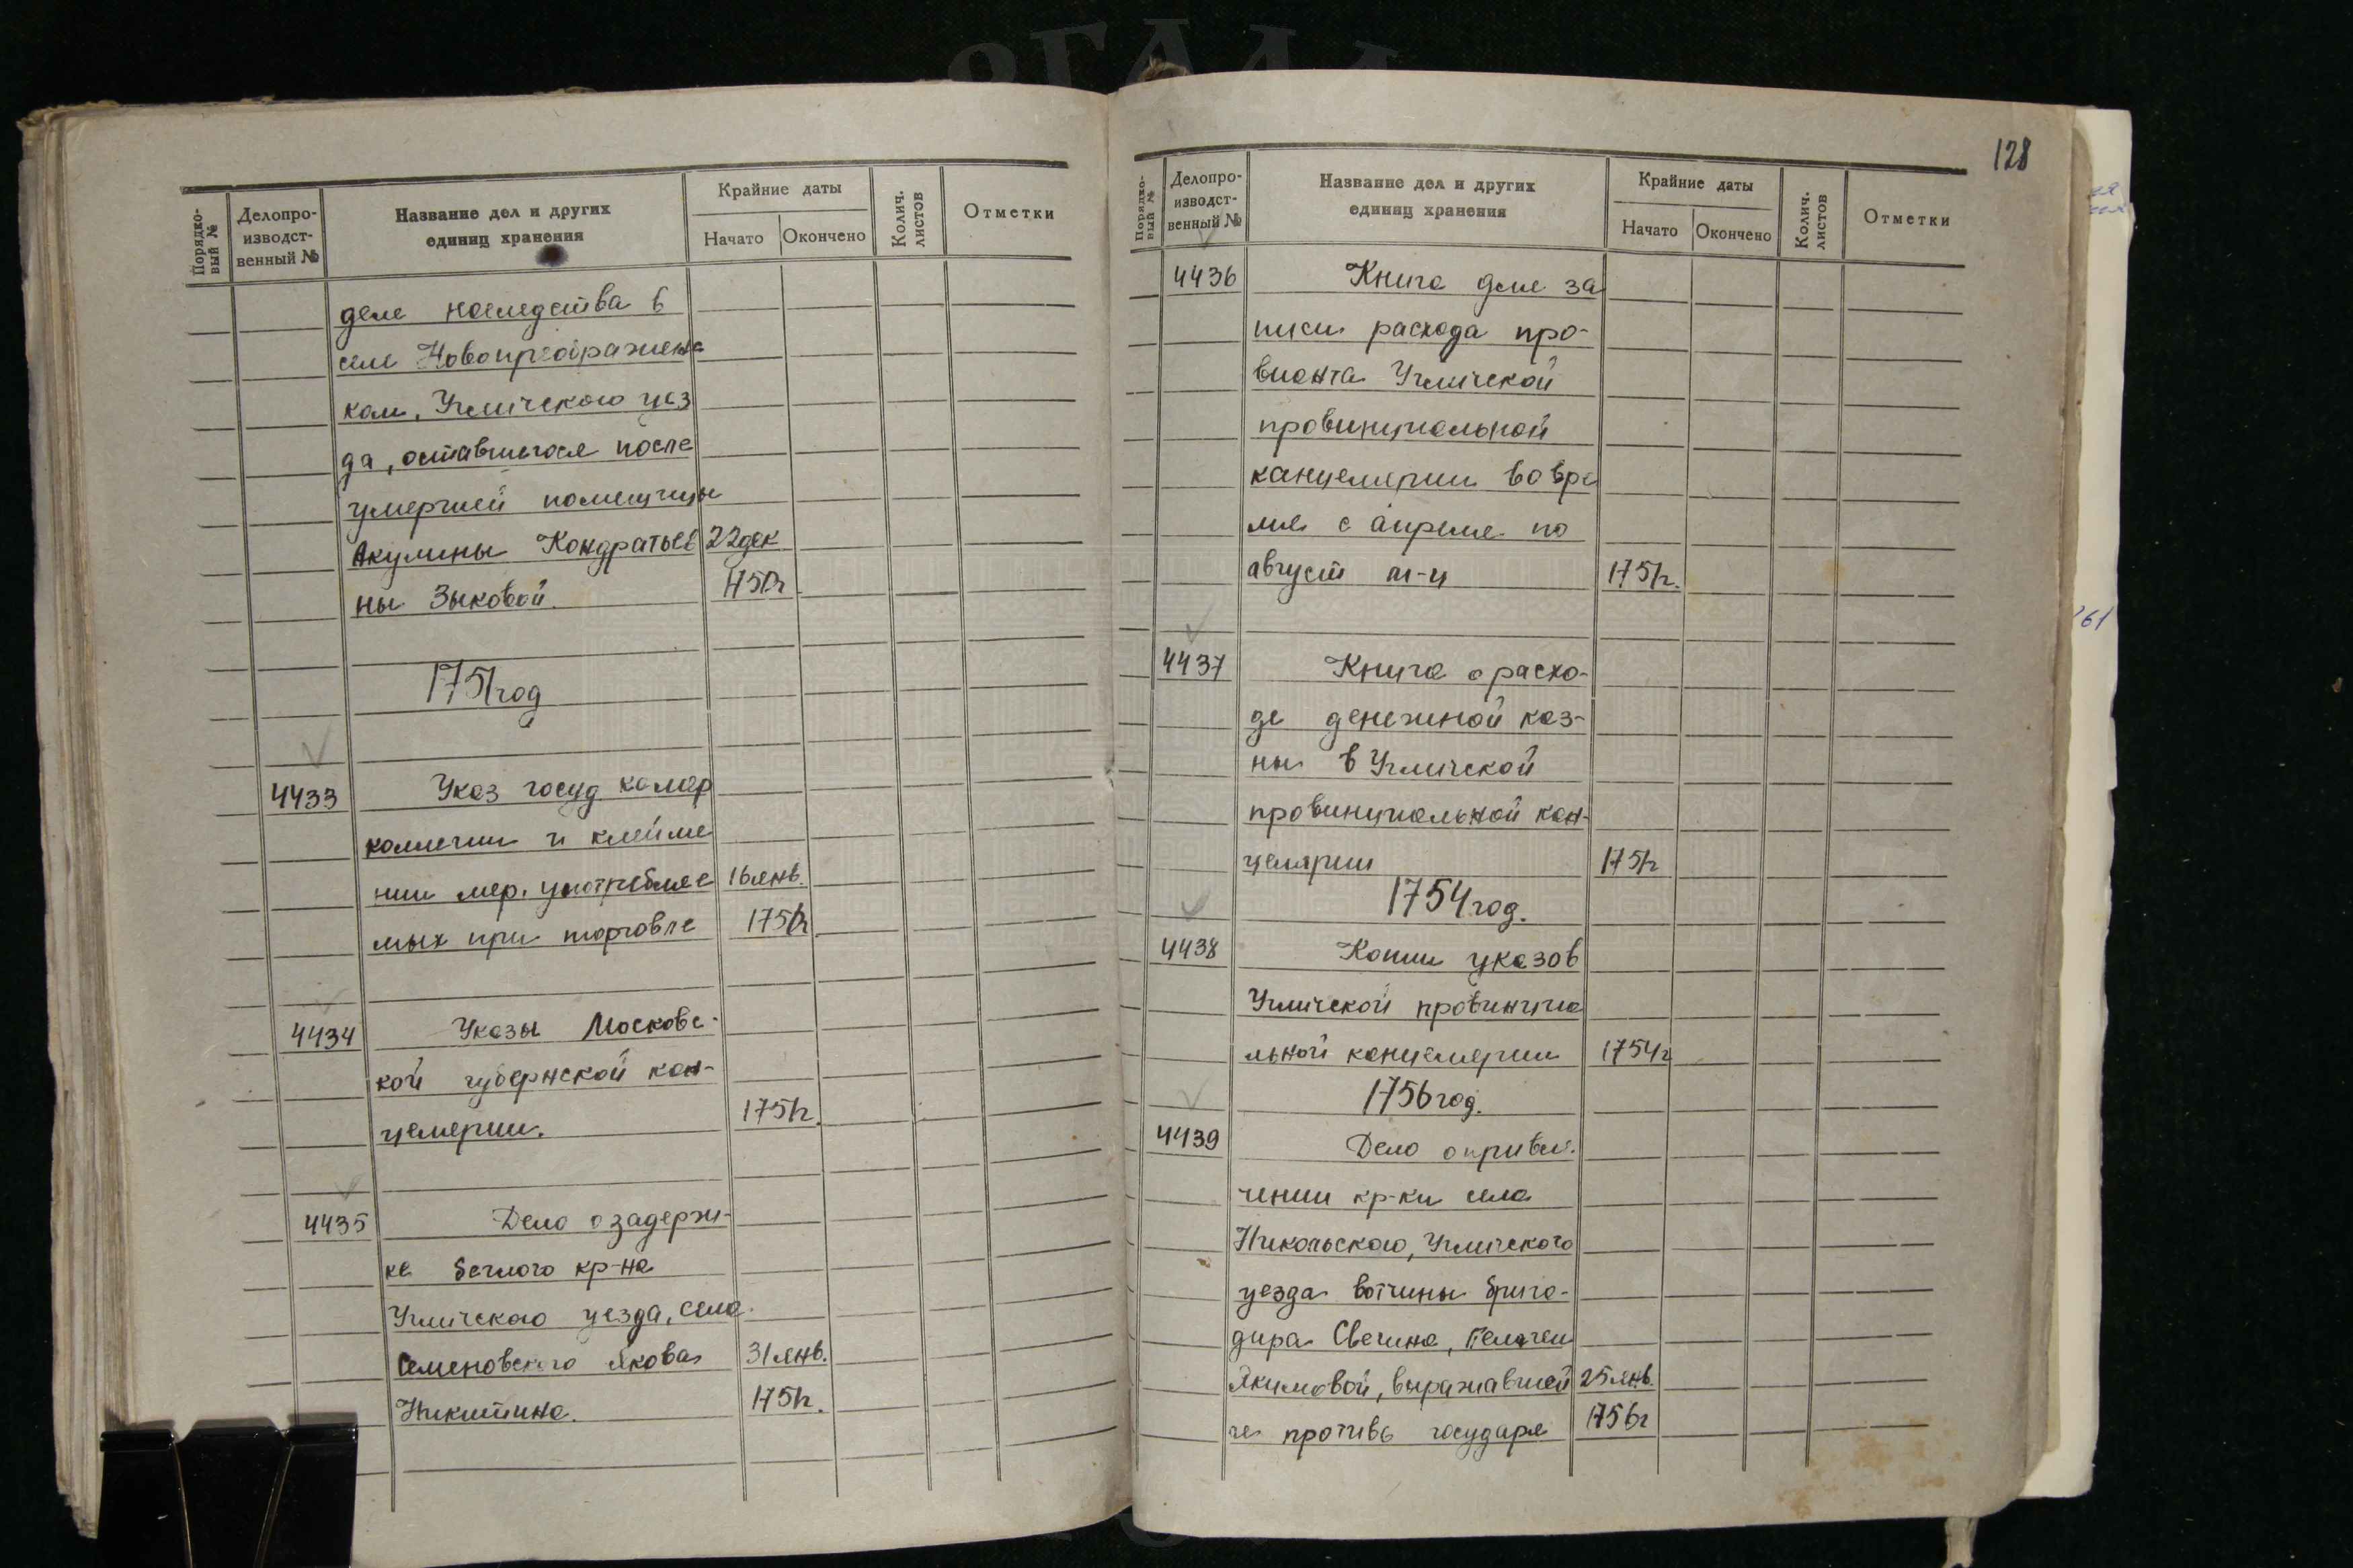 РГАДА
Порядко-
вый №
Делопро-
изводст-
венный №
Название дел и других
единиц хранения
Крайние даты
Начато
Окончено
Колич.
листов
Отметки
деле наследства в
селе Новопреображенс
ком, Угличского уез
да, оставшегося после
умершей помещицы
Акулины Кондратьев 22 дек
ны Зыковой. 1750г
1751 год
4433 Указ госуд камер
коллегии и клейме
нии мер, употребляе 16 янв.
мых при торговле 1751г
4434 Указы Московс-
кой губернской кан-
целярии. 1751г.
4435 Дело о задерж-
ке беглого кр-на
Угличского уезда, села
Семеновского Якова 31 янв.
Никитина. 1751г.
128
Порядко-
вый №
Делопро-
изводст-
венный №
Название дел и других
единиц хранения
Крайние даты
Начато
Окончено
Колич.
листов
Отметки
4436 Книга для за
писи расхода про-
вианта Угличской
провинциальной
канцелярии во вре
мя с апреля по
август м-ц 1751г.
4437 Книга о расхо-
де денежной каз-
ны в Угличской
провинциальной кан-
целярии 1751г
1754 год.
4438 Копии указов
Угличской провинциа
льной канцелярии 1754г
1756 год.
4439 Дело о привле-
чении кр-ки села
Никольского, Угличского
уезда вотчины брига-
дира Свечина, Пелагеи
Якимовой, выражавшей 25 янв.
ся против государя 1756г
61